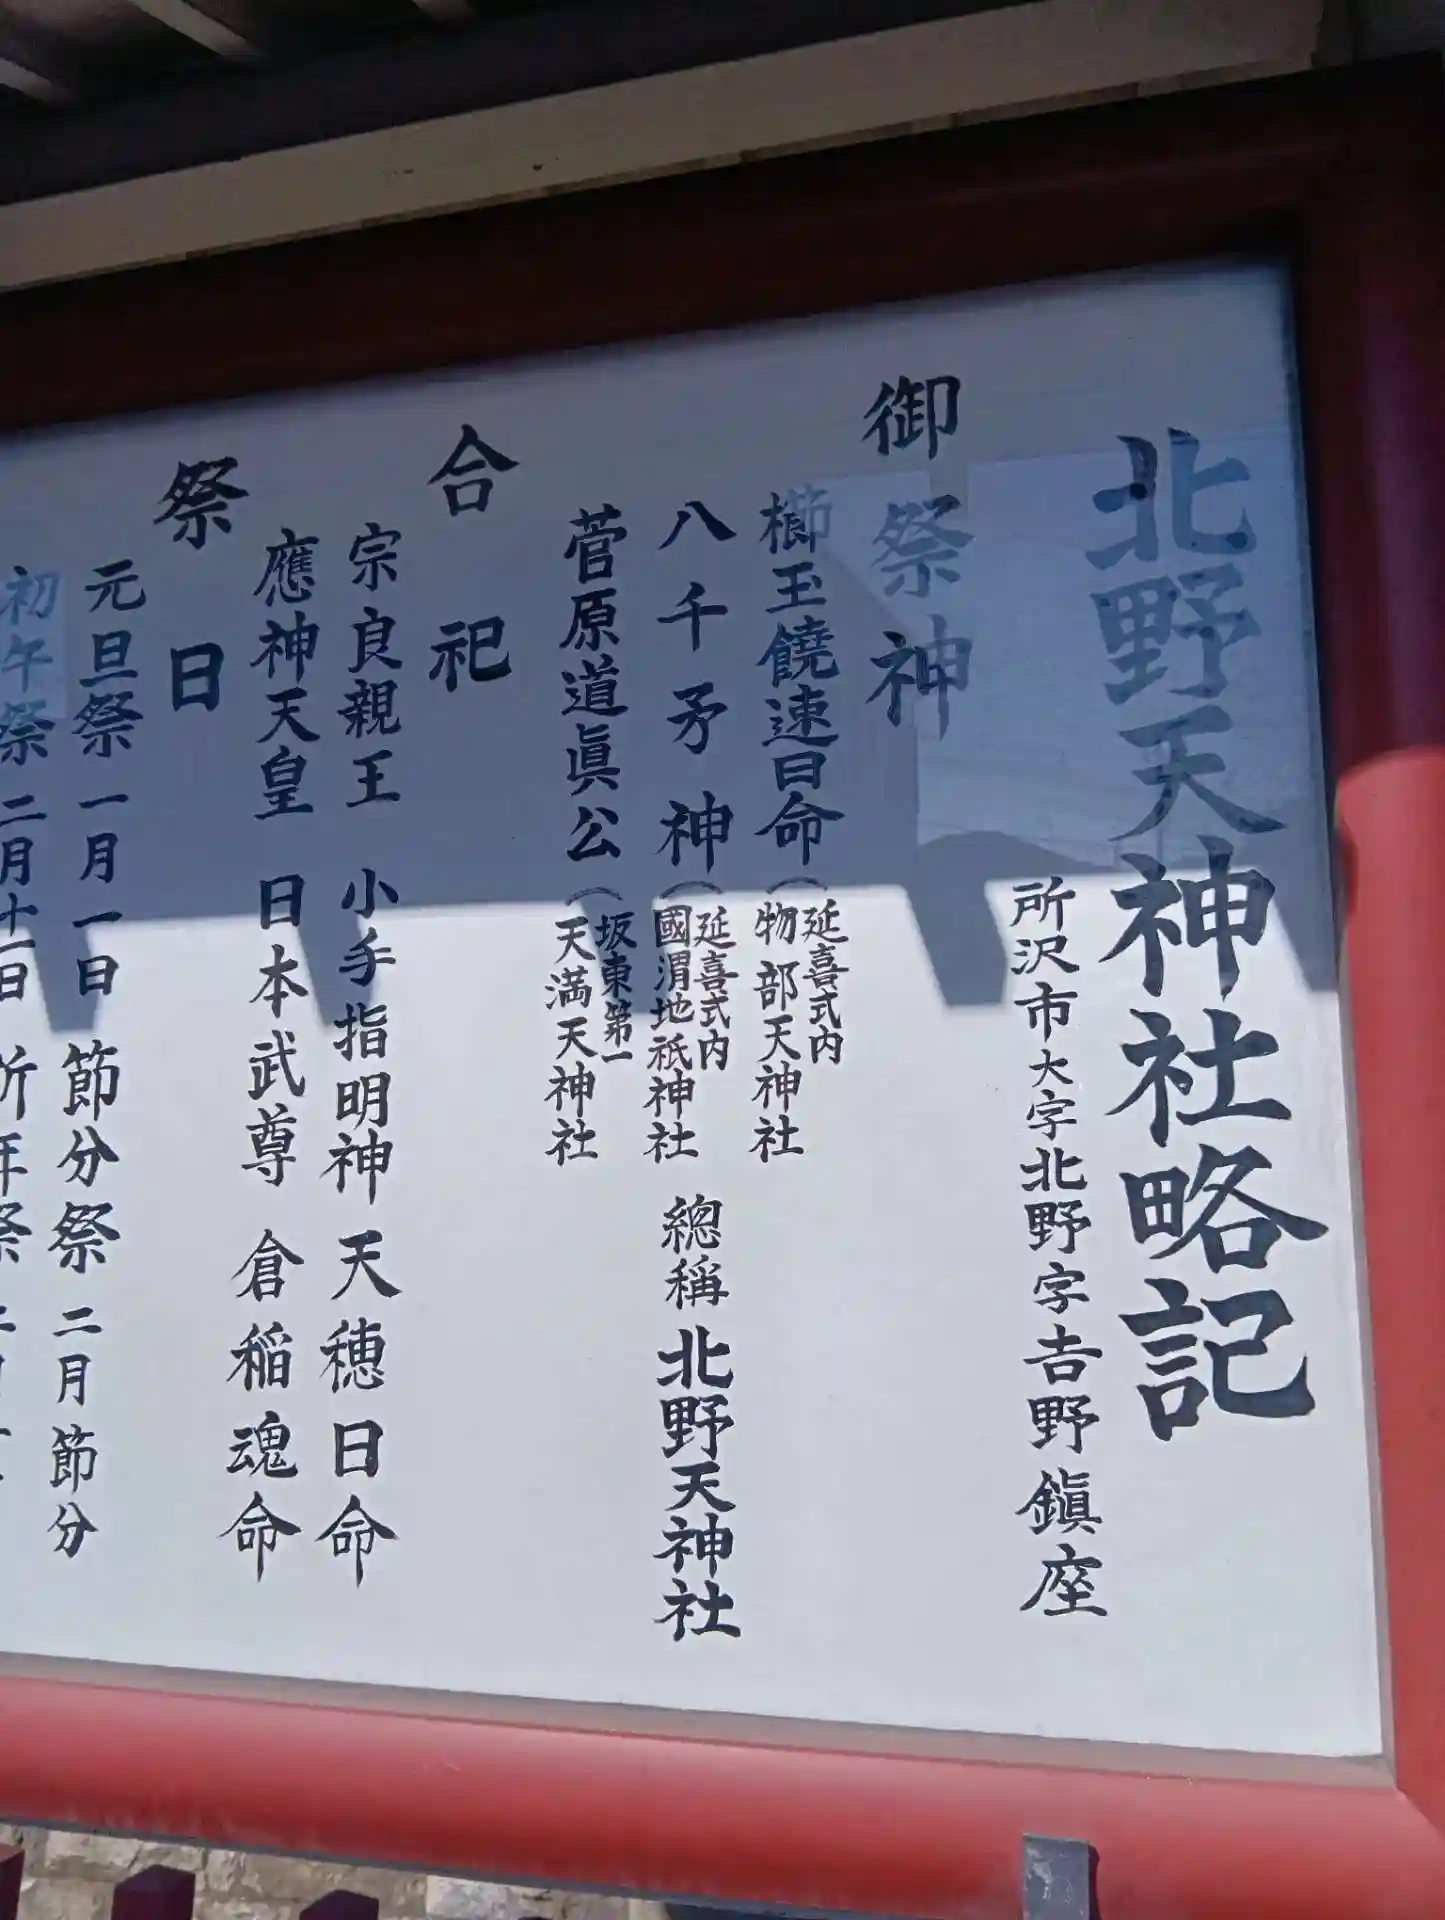 北野天神社略記
所沢市大字北野字𠮷野鎭座
御祭神
櫛玉饒速日命（延喜式内物部天神社
八千矛神（延喜式内國渭地祇神社
總稱北野天神社
菅原道眞公（坂東第一天満天神社
合祀
宗良親王 小手指明神 天穂日命
應神天皇 日本武尊 倉稲魂命
祭日
元旦祭 一月一日 節分祭 二月節分
初午祭 二月十一日 祈年祭